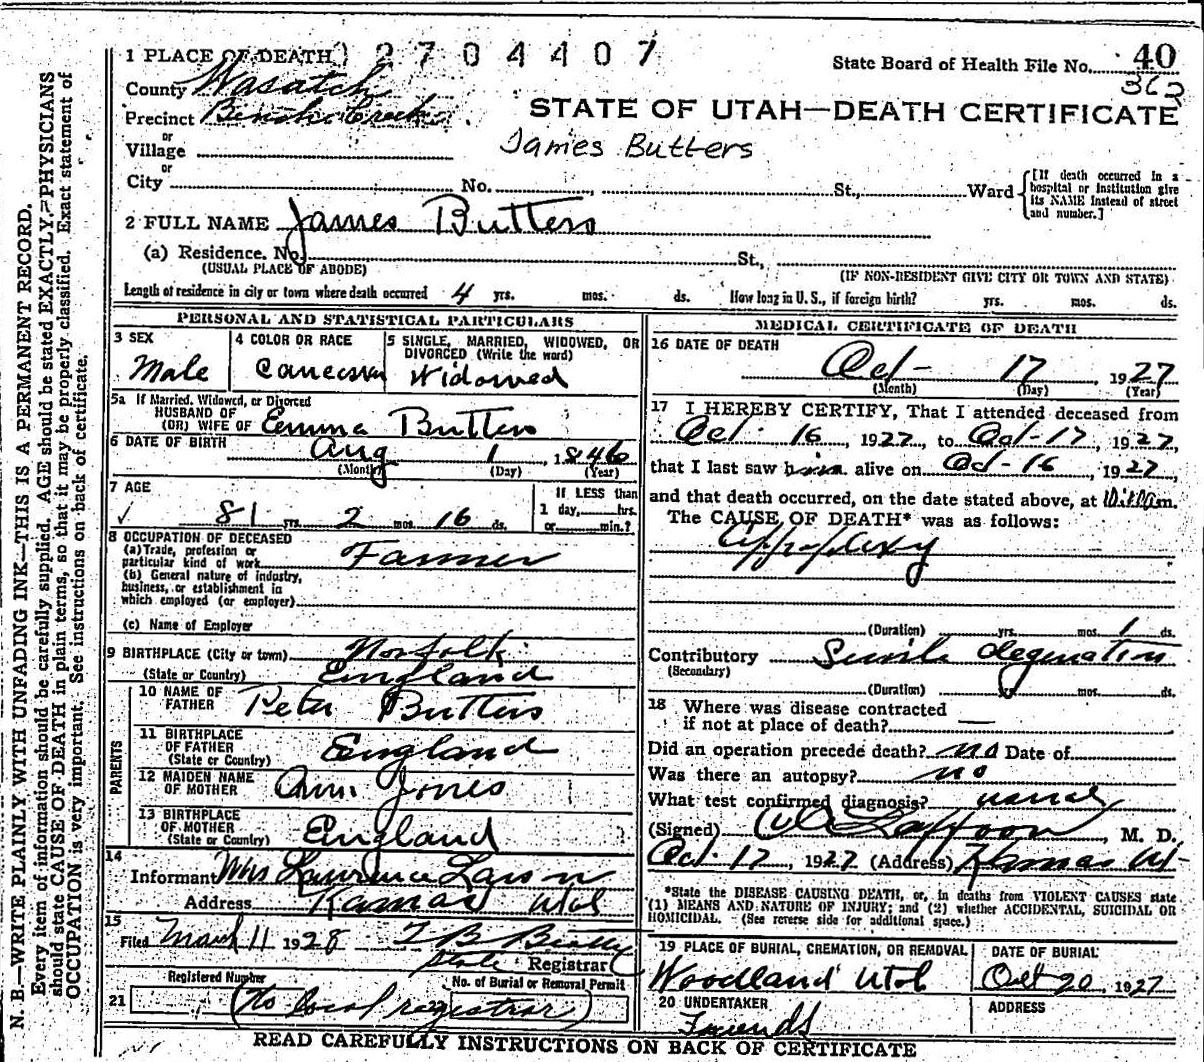 N. B.—WRITE PLAINLY WITH UNFADING INK—THIS IS A PERMANENT RECORD.
Every item of information should be carefully supplied. AGE should be stated EXACTLY. PHYSICIANS
should state CAUSE OF DEATH in plain terms, so that it may be properly classified. Exact statement of
OCCUPATION is very important. See instructions on back of certificate.
1 PLACE OF DEATH 2704407
State Board of Health File No. 40
363
County Wasatch
Precinct Bench Creek
STATE OF UTAH—DEATH CERTIFICATE
or
Village
James Butters
or
City No. St., Ward
[If death occurred in a
hospital or institution give
its NAME instead of street
and number.]
2 FULL NAME James Butters
(a) Residence. No. St.,
(USUAL PLACE OF ABODE) (IF NON-RESIDENT GIVE CITY OR TOWN AND STATE)
Length of residence in city or town where death occurred 4 yrs. mos. ds. How long in U. S., if foreign birth? yrs. mos. ds.
PERSONAL AND STATISTICAL PARTICULARS
3 SEX
Male
4 COLOR OR RACE
5 SINGLE, MARRIED, WIDOWED, OR
DIVORCED (Write the word)
Widowed
5a If Married, Widowed, or Divorced
HUSBAND OF
(OR) WIFE OF Emma Butters
6 DATE OF BIRTH Aug 1 1846
(Month) (Day) (Year)
7 AGE
81 yrs. 2 mos. 16 ds.
If LESS than
1 day, hrs.
or min.?
8 OCCUPATION OF DECEASED
(a) Trade, profession or
particular kind of work Farmer
(b) General nature of industry,
business, or establishment in
which employed (or employer)
(c) Name of Employer
9 BIRTHPLACE (City or town) Norfolk
(State or Country) England
PARENTS
10 NAME OF
FATHER Peter Butters
11 BIRTHPLACE
OF FATHER
(State or Country) England
12 MAIDEN NAME
OF MOTHER Ann Jones
13 BIRTHPLACE
OF MOTHER
(State or Country) England
14
Informant Mrs Lawrence Larson
Address Kamas Utah
15
Filed March 11 1928
State Registrar
Registered Number No. of Burial or Removal Permit
21 (to local registrar)
MEDICAL CERTIFICATE OF DEATH
16 DATE OF DEATH
Oct- 17 1927
(Month) (Day) (Year)
17 I HEREBY CERTIFY, That I attended deceased from
Oct. 16, 1927, to Oct-17, 1927,
that I last saw him alive on Oct-16, 1927,
and that death occurred, on the date stated above, at m.
The CAUSE OF DEATH* was as follows:
Appoplexy
(Duration) yrs. mos. 1 ds.
Contributory
(Secondary)
(Duration) yrs. mos. ds.
18 Where was disease contracted
if not at place of death? —
Did an operation precede death? no Date of
Was there an autopsy? no
What test confirmed diagnosis? usual
(Signed) Laffoon, M. D.
Oct. 17, 1927 (Address) Kamas Ut-
*State the DISEASE CAUSING DEATH, or, in deaths from VIOLENT CAUSES state
(1) MEANS AND NATURE OF INJURY; and (2) whether ACCIDENTAL, SUICIDAL OR
HOMICIDAL. (See reverse side for additional space.)
19 PLACE OF BURIAL, CREMATION, OR REMOVAL
Woodland Utah
DATE OF BURIAL
Oct 20 1927
20 UNDERTAKER
Friends
ADDRESS
READ CAREFULLY INSTRUCTIONS ON BACK OF CERTIFICATE